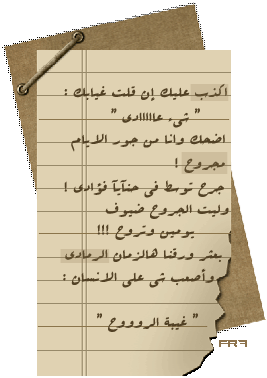 اكذب عليك إن قلت غيابك :
" شيء عااااادى "
اضحك وانا من جور الايام
مجروح !
جرح توسط فى حنايآ فؤادى !
وليت الجروح ضيوف
يومين وتروح !!!
بعثر ورقنا هالزمان الرمادى
وأصعب شى على الانسان :
" غيبة الروووح "
FR7